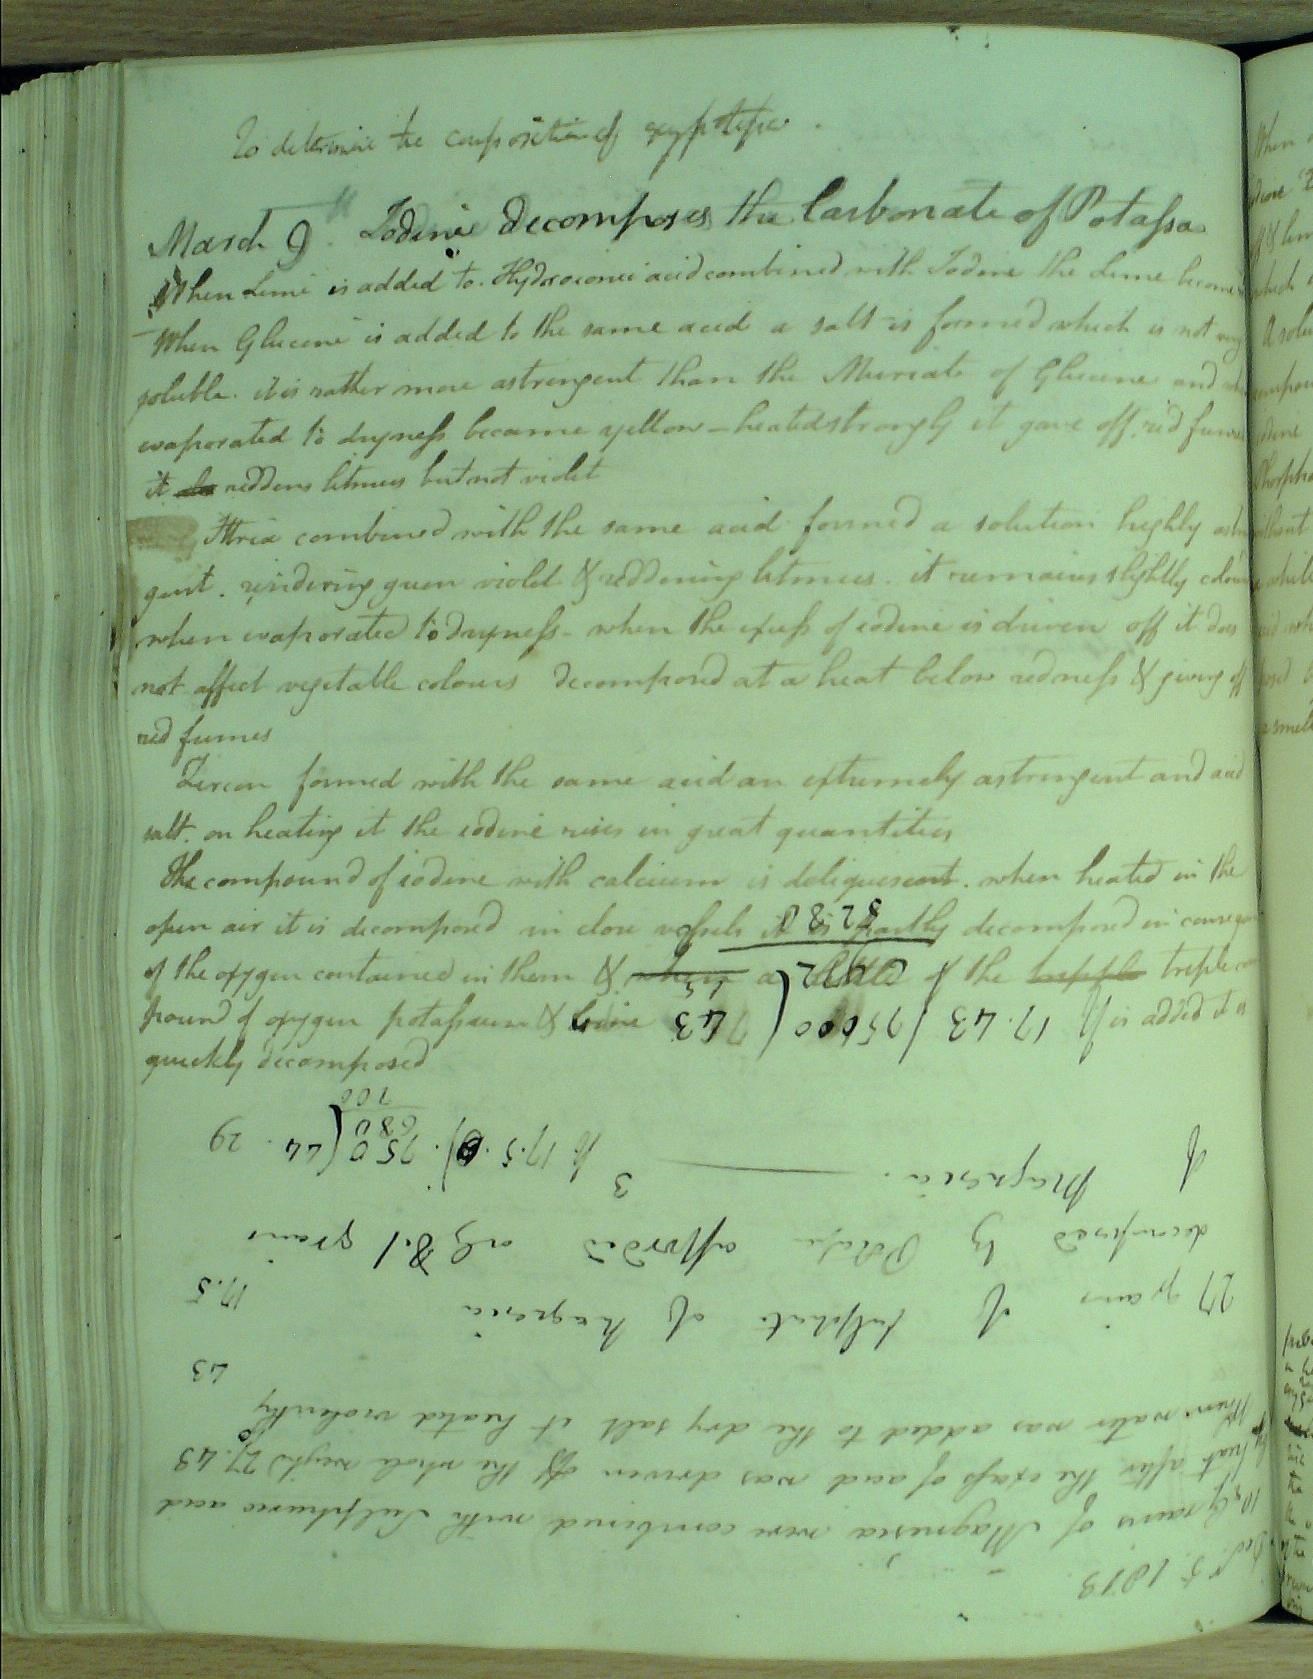 To determine the composition of
March 9. Iodine decomposes the Carbonate of Potassa
When Lime is added to Hydroionic acid combined with Iodine the Lime becomes
When Glucine is added to the same acid a salt is formed which is not very
soluble. it is rather more astringent than the Muriate of Glucine and when
evaporated to dryness became yellow - heated strongly it gave off red fumes
it reddens litmus but not violet
Ittria combined with the same acid formed a solution highly astrin
gent. rendering green violet & reddening litmus. it remains slightly colour
when evaporated to dryness - when the excess of iodine is driven off it does
not affect vegetable colours decomposed at a heat below redness & giving off
red fumes
Zircon formed with the same acid an extremely astringent and acid
salt. on heating it the iodine rises in great quantities
The compound of iodine with calcium is deliquescent. when heated in the
open air it is decomposed in close vessels it is partly decomposed in consequen
of the oxygen contained in them & when a little of the tripple triple com
pound of oxygen potassium & iodine is added it is
quickly decomposed
Oct.r 5. 1813
10 Grains of Magnesia were combined with Sulphuric acid
by heat after the excess of acid was driven off the whole weighd 27.43
When water was added to the dry salt it heated violently
43
27 grains of sulphate of Magnesia
17.5
decomposed by Potassa afforded only 8.1 grains
of Magnesia. 3
If 17.5. 9). 750 (44. 29
680
700
If 17.43 / 75000 ( 43